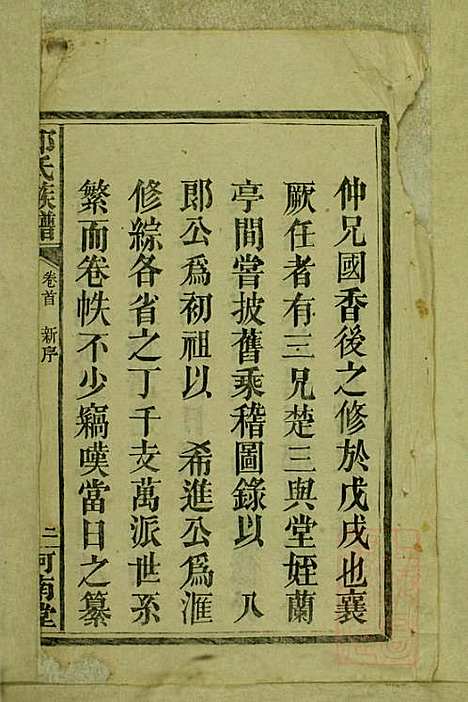 仲兄國香後之修於戊戌也襄
厥任者有三兄楚三與堂姪蘭
亭間嘗披舊乘稽圖錄以 八
郎公爲初祖以 希進公爲滙
修綜各省之丁千支萬派世系
繁而卷帙不少竊嘆當日之纂
氏族譜
卷首 新序
二
河南堂